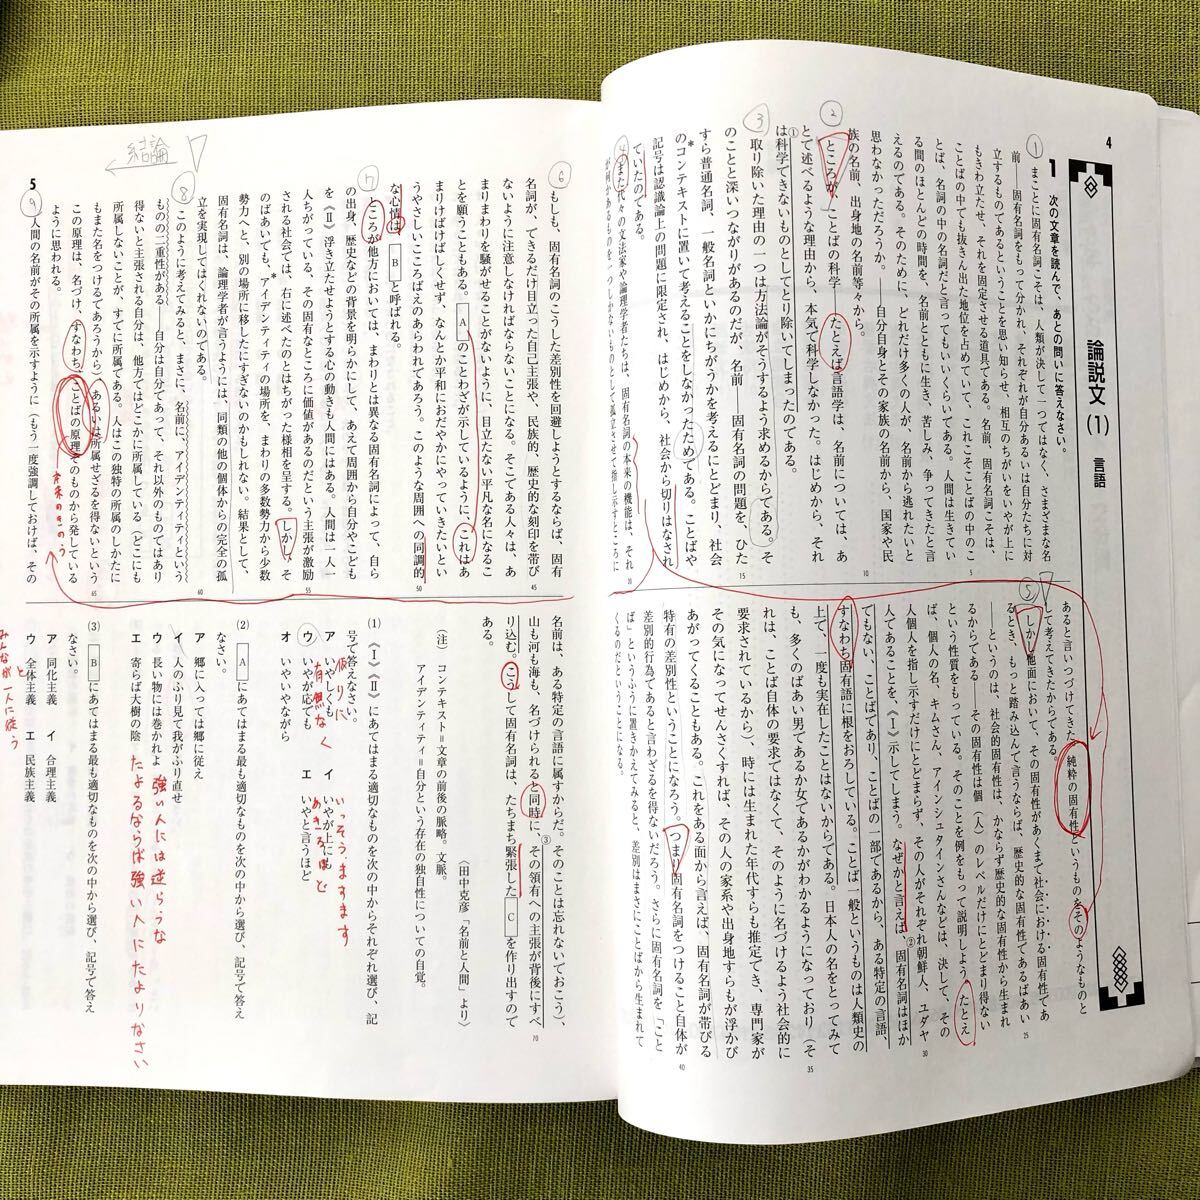 4
論説文(1) 言語
1 次の文章を読んで、あとの問いに答えなさい。
① まことに固有名詞こそは、人類が決して一つではなく、さまざまな名
前――固有名詞をもって分かれ、それぞれが自分あるいは自分たちに対
立するものであるということを思い知らせ、相互のちがいをいやが上に
もきわ立たせ、それを固定させる道具である。名前、固有名詞こそは、
ことばの中でも抜きん出た地位を占めていて、これこそことばの中のこ
とば、名詞の中の名詞だと言ってもいいくらいである。人間は生きてい
る間のほとんどの時間を、名前とともに生き、苦しみ、争ってきたと言
えるのである。そのために、どれだけ多くの人が、名前から逃れたいと
思わなかっただろうか。――自分自身とその家族の名前から、国家や民
族の名前、出身地の名前等々から。
② ところが、ことばの科学――たとえば言語学は、名前については、あ
とで述べるような理由から、本気で科学しなかった。はじめから、それ
は科学できないものとしてとり除いてしまったのである。
③ 取り除いた理由の一つは方法論がそうするよう求めるからである。そ
のことと深いつながりがあるのだが、名前――固有名詞の問題を、ひた
すら普通名詞、一般名詞といかにちがうかを考えるにとどまり、社会
のコンテキストに置いて考えることをしなかったためである。ことばや
記号は認識論上の問題に限定され、はじめから、社会から切りはなされ
ていたのである。
④ また代々の文法家や論理学者たちは、固有名詞の本来の機能は、それ
あると言いつづけてきた。純粋の固有性というものをそのようなものと
して考えてきたからである。
⑤ しかし他面において、その固有性があくまで社会における固有性であ
るとき、もっと踏み込んで言うならば、歴史的な固有性であるばあい
――というのは、社会的固有性は、かならず歴史的な固有性から生まれ
るからである――その固有性は個(人)のレベルだけにとどまり得ない
という性質をもっている。そのことを例をもって説明しよう。たとえ
ば、個人の名、キムさん、アインシュタインさんなどは、決して、その
人個人を指し示すだけにとどまらず、その人がそれぞれ朝鮮人、ユダヤ
人であることを、《Ⅰ》示してしまう。なぜかと言えば、固有名詞はほか
でもない、ことばであり、ことばの一部であるから、ある特定の言語、
すなわち固有語に根をおろしている。ことば一般というものは人類史の
上で、一度も実在したことはないからである。日本人の名をとってみて
も、多くのばあい男であるか女であるかがわかるようになっており(そ
れは、ことば自体の要求ではなくて、そのように名づけるよう社会的に
要求されているから)、時には生まれた年代すらも推定でき、専門家が
その気になってせんさくすれば、その人の家系や出身地すらもが浮かび
あがってくることもある。これをある面から言えば、固有名詞が帯びる
特有の差別性ということになろう。つまり固有名詞をつけること自体が
差別的行為であると言わざるを得ないだろう。さらに固有名詞を「こと
ば」というふうに置きかえてみると、差別はまさにことばから生まれて
くるのだということになる。
5
⑥ もしも、固有名詞のこうした差別性を回避しようとするならば、固有
名詞が、できるだけ目立った自己主張や、民族的、歴史的な刻印を帯び
ないように注意しなければならないことになる。そこである人々は、あ
まりまわりを騒がせることがないように、目立たない平凡な名になるこ
とを願うこともある。Aのことわざが示しているように、これはあ
まりけばけばしくせず、なんとか平和におだやかにやっていきたいとい
うやさしいこころばえのあらわれであろう。このような周囲への同調的
な心情はBと呼ばれる。
⑦ ところが他方においては、まわりとは異なる固有名詞によって、自ら
の出身、歴史などの背景を明らかにして、あえて周囲から自分やこども
を《Ⅱ》浮き立たせようとする心の動きも人間にはある。人間は一人一
人ちがっている、その固有なところに価値があるのだという主張が激励
される社会では、右に述べたのとはちがった様相を呈する。しかし、そ
のばあいでも、アイデンティティの場所を、まわりの多数勢力から少数
勢力へと、別の場所に移したにすぎないのかもしれない。結果として、
固有名詞は、論理学者が言うようには、同類の他の個体からの完全の孤
立を実現してはくれないのである。
結論
⑧ このように考えてみると、まさに、名前に、アイデンティティという
ものの二重性がある――自分は自分であって、それ以外のものではあり
得ないと主張される自分は、他方ではどこかに所属している(どこにも
所属しないことが、すでに所属である。人はこの独特の所属のしかたに
もまた名をつけるであろうから)あるいは所属せざるを得ないという
この原理は、名づけ、すなわちことばの原理そのものから発している
ように思われる。
本来のきのう
⑨ 人間の名前がその所属を示すように(もう一度強調しておけば、その
名前は、ある特定の言語に属すからだ。そのことは忘れないでおこう)、
山も河も海も、名づけられると同時に、その領有への主張が背後にすべ
り込む。こうして固有名詞は、たちまち緊張したCを作り出すので
ある。
〈田中克彦「名前と人間」より〉
(注) コンテキスト=文章の前後の脈略。文脈。
アイデンティティ=自分という存在の独自性についての自覚。
(1) 《Ⅰ》《Ⅱ》にあてはまる最も適切なものを次の中からそれぞれ選び、記
号で答えなさい。
ア いやしくも イ いやが上にも
仮りに いっそう、ますます
ウ いやが応でも エ いやと言うほど
有無なく あきるほど
オ いやいやながら
(2) Aにあてはまる最も適切なものを次の中から選び、記号で答え
なさい。
ア 郷に入っては郷に従え
イ 人のふり見て我がふり直せ
ウ 長い物には巻かれよ 強い人には逆らうな
エ 寄らば大樹の陰 たよるならば強い人にたよりなさい
(3) Bにあてはまる最も適切なものを次の中から選び、記号で答え
なさい。
ア 同化主義 イ 合理主義
ウ 全体主義 エ 民族主義
みんなが一人に従う